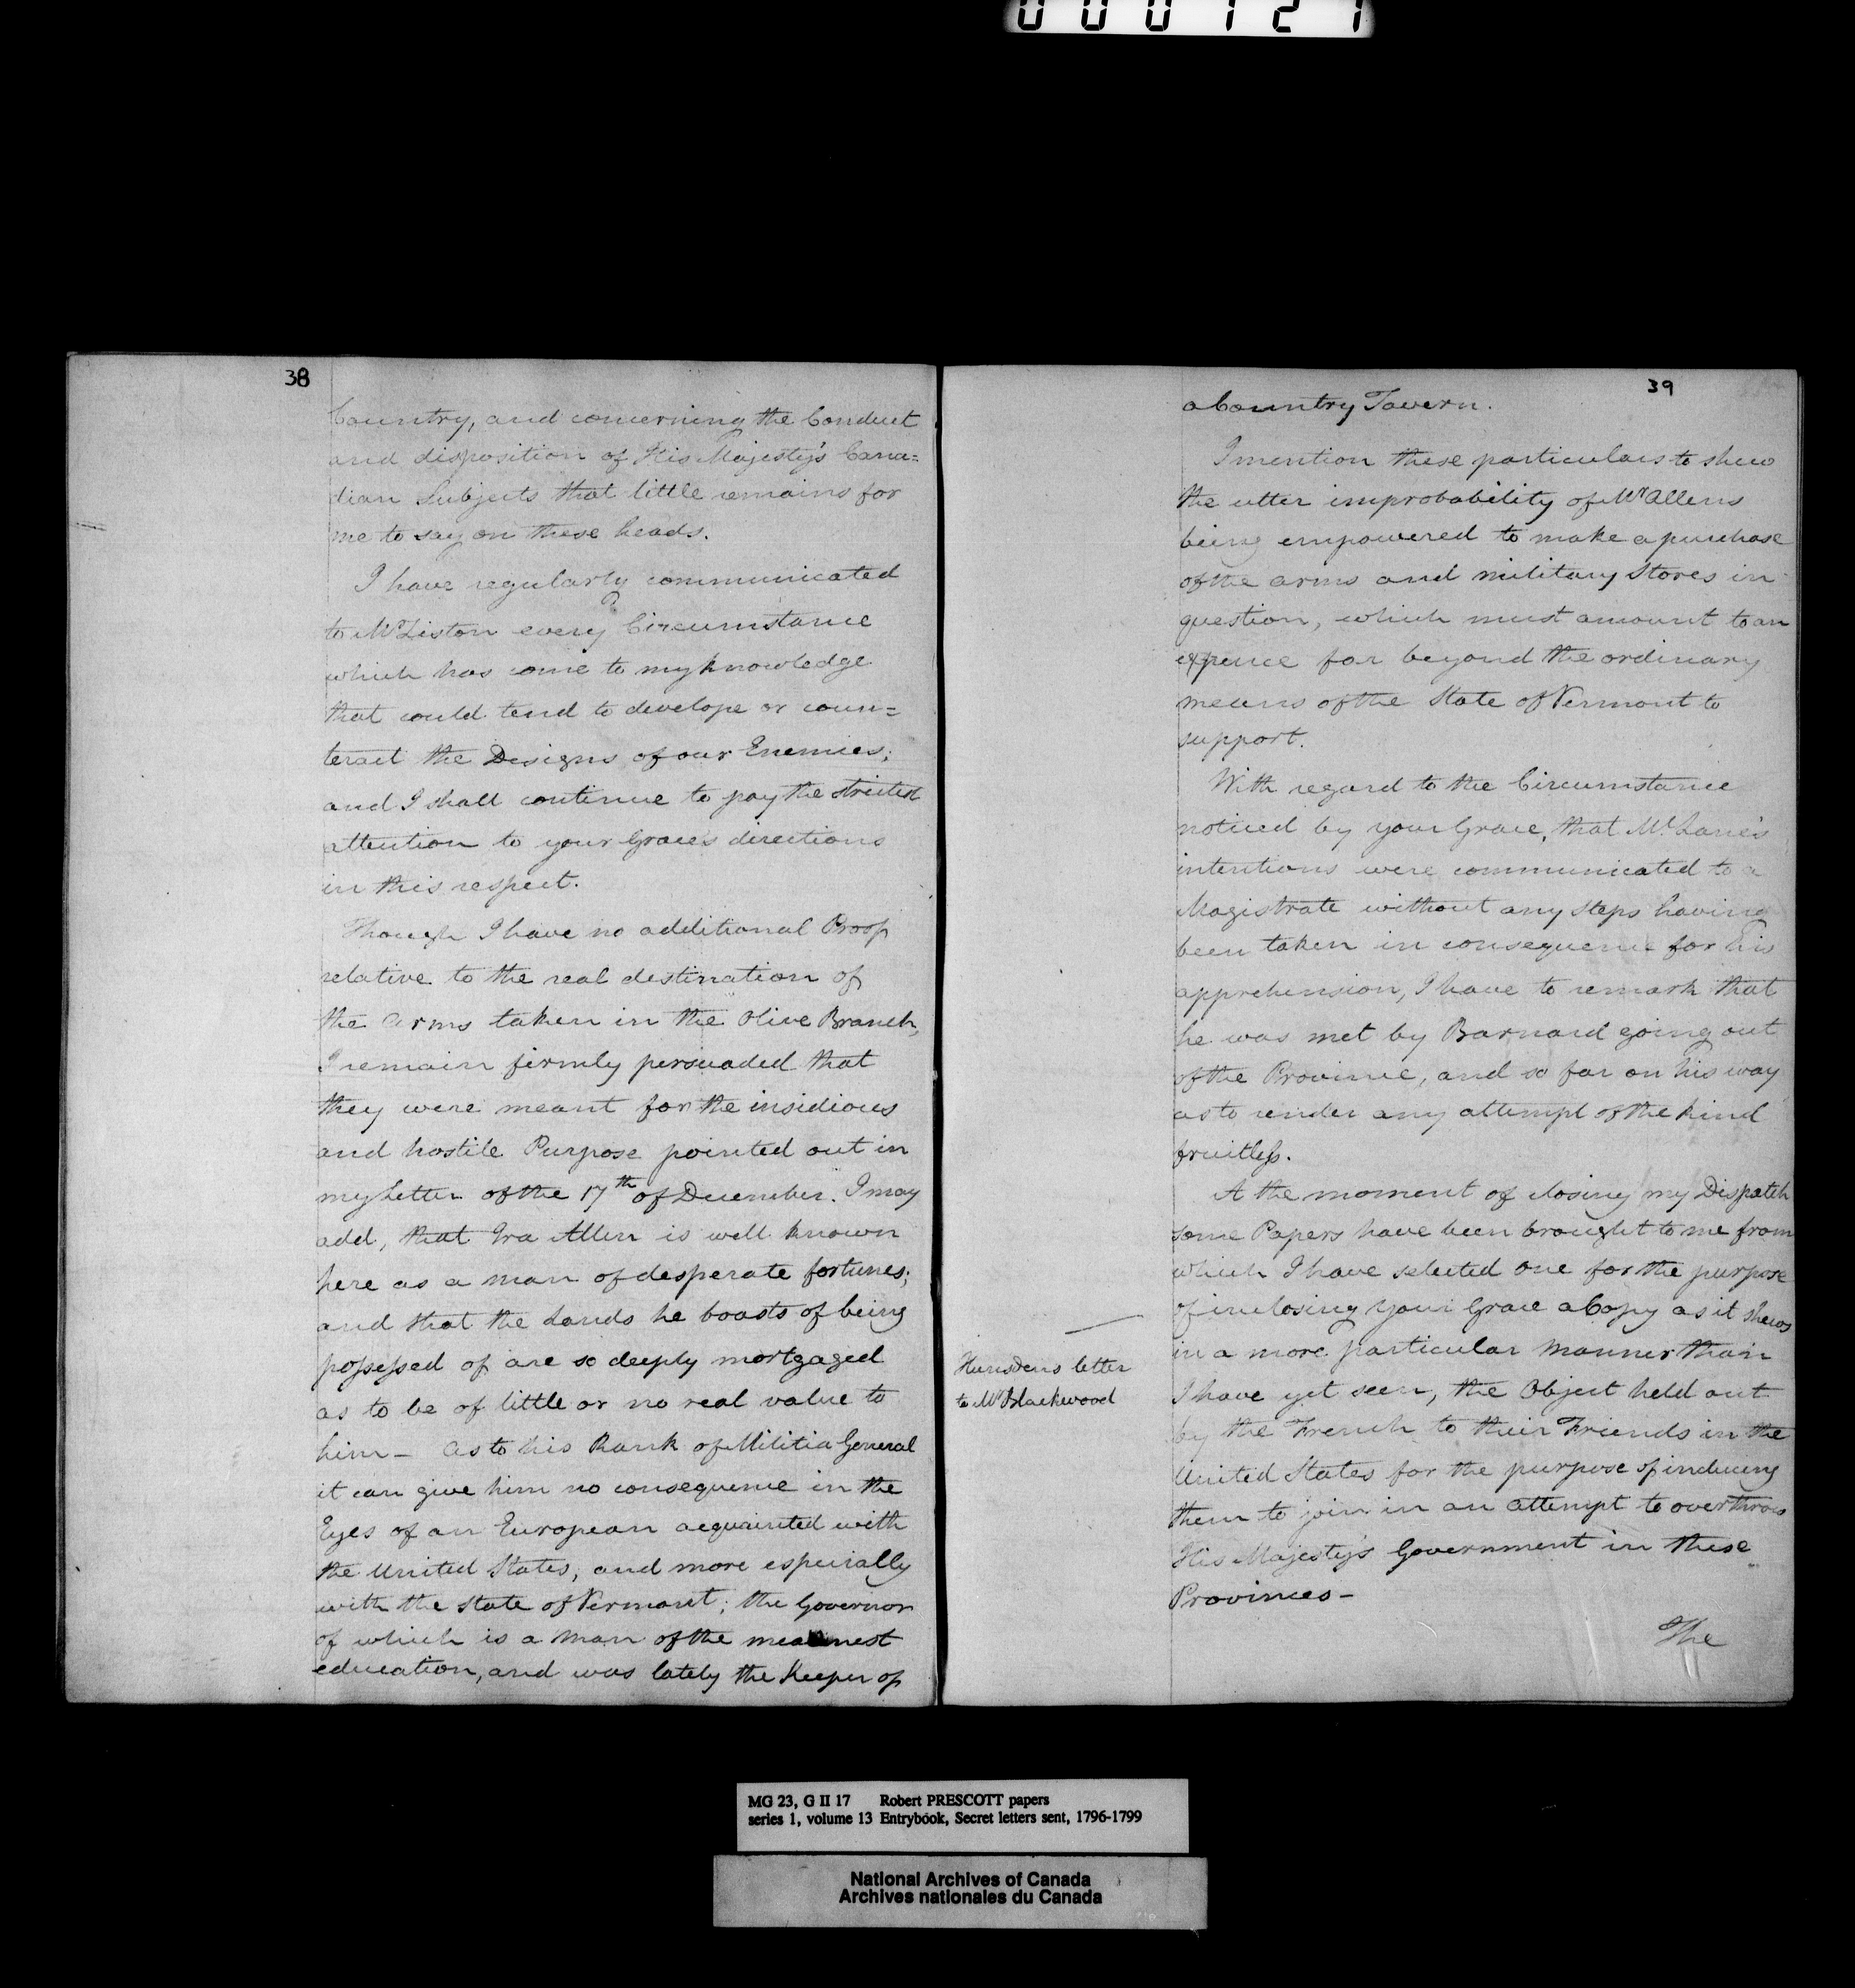 000121
38
Country, and concerning the Conduct
and disposition of His Majesty's Cana=
dian Subjects that little remains for
me to say on these heads.
I have regularly communicated
to Mr Liston every Circumstance
which has come to my knowledge
that could tend to develope or coun=
teract the Designs of our Enemies;
and I shall continue to pay the strictest
attention to your Grace's directions
in this respect.
Though I have no additional Proof
relative to the real destination of
the arms taken in the Olive Branch,
I remain firmly persuaded that
they were meant for the insidious
and hostile Purpose pointed out in
my Letter of the 17th of December. I may
add, that Ira Allen is well known
here as a man of desperate fortunes;
and that the Lands he boasts of being
possessed of are so deeply mortgaged
as to be of little or no real value to
him - As to his Rank of Militia General
it can give him no consequence in the
Eyes of an European acquainted with
the United States, and more especially
with the State of Vermont; the Governor
of which is a man of the meanest
education, and was lately the Keeper of
39
a Country Tavern.
I mention these particulars to shew
the utter improbability of Mr Allens
being empowered to make a purchase
of the arms and military Stores in
question, which must amount to an
expence far beyond the ordinary
means of the State of Vermont to
support.
With regard to the Circumstance
noticed by your Grace, that Mc Lane's
intentions were communicated to a
Magistrate without any steps having
been taken in consequence for his
apprehension, I have to remark that
he was met by Barnard going out
of the Province, and so far on his way
as to render any attempt of the kind
fruitless.
At the moment of closing my Dispatch
some Papers have been brought to me from
which I have selected one for the purpose
of inclosing your Grace a Copy as it shews
in a more particular manner than
I have yet seen, the Object held out
by the French to their Friends in the
United States for the purpose of inducing
them to join in an attempt to overthrow
His Majesty's Government in these
Provinces -
letter
to Mr Blackwood
The
MG 23, G II 17 Robert PRESCOTT papers
series 1, volume 13 Entrybook, Secret letters sent, 1796-1799
National Archives of Canada
Archives nationales du Canada